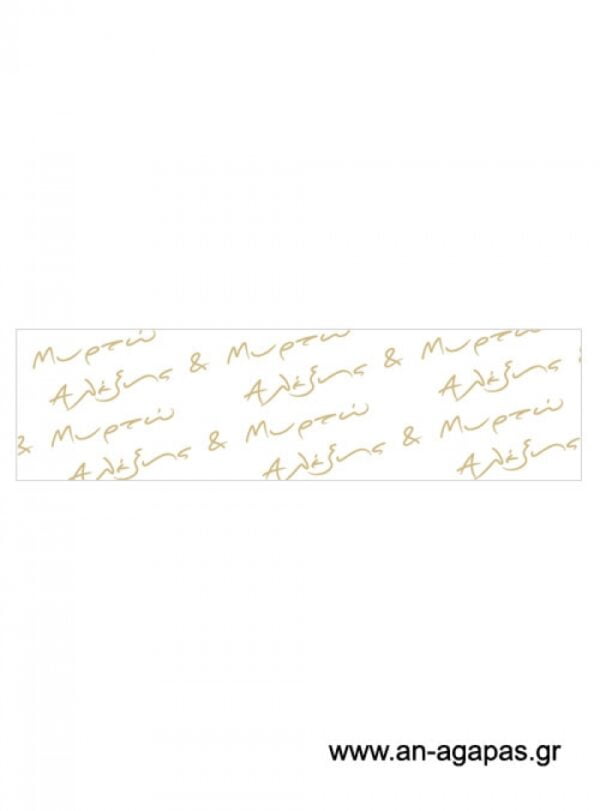 Μυρτώ & Μυρτώ & Μυρτώ
Αλέξης & Αλέξης & Αλέξης &
& Μυρτώ & Μυρτώ & Μυρτώ
Αλέξης Αλέξης Αλέξης
www.an-agapas.gr